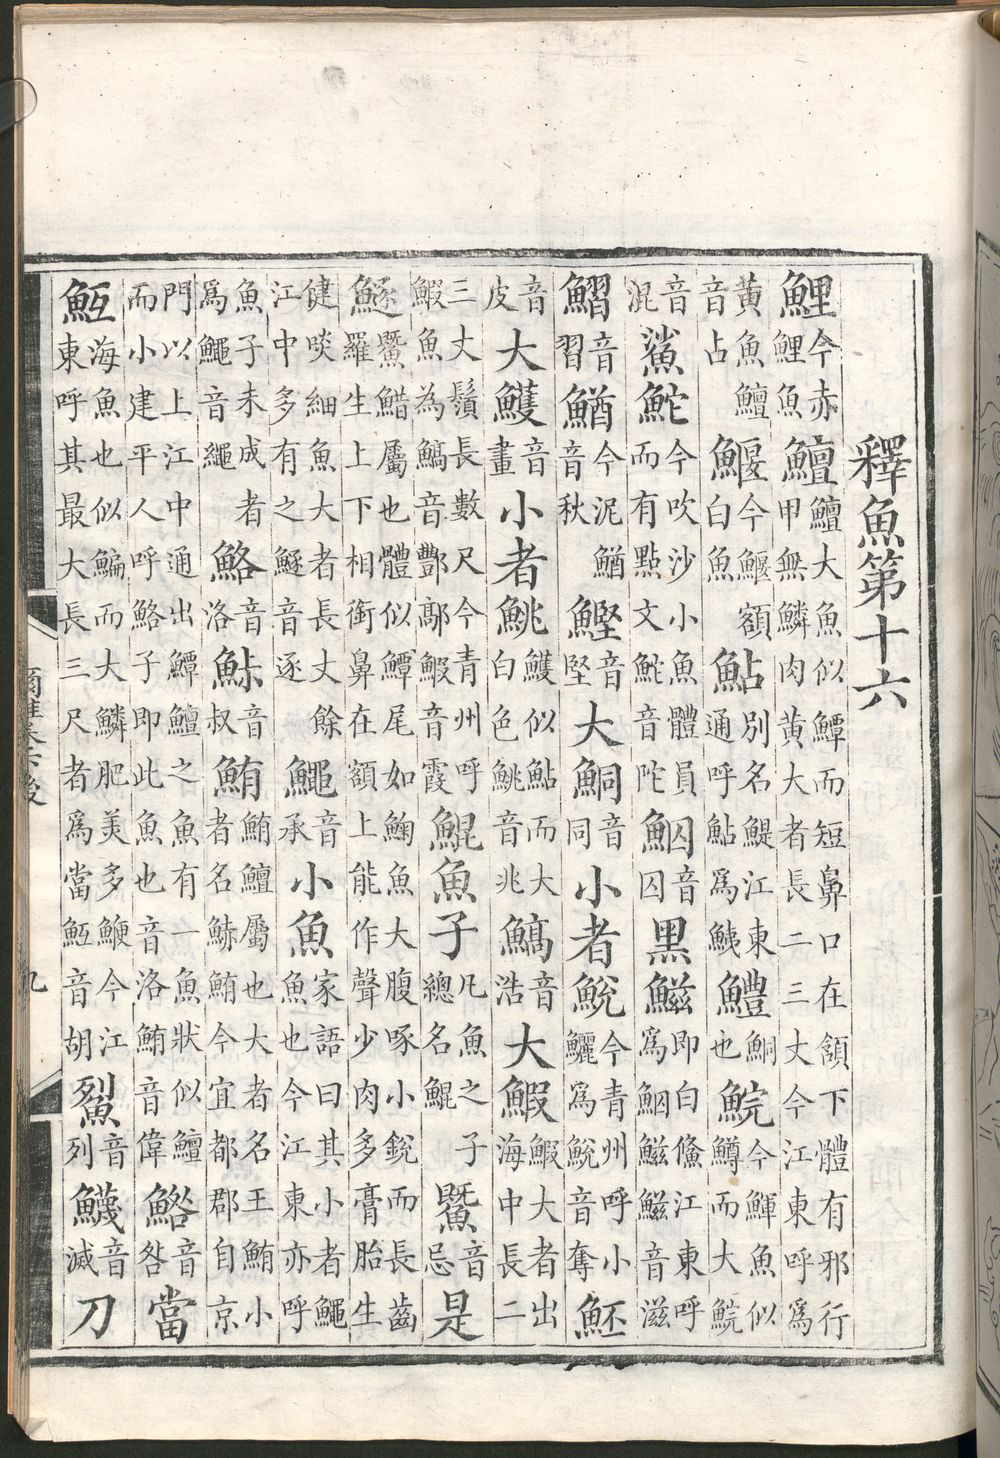 釋魚第十六
鯉今赤鯉魚鱣鱣大魚似鱏而短鼻口在頷下體有邪行甲無鱗肉黃大者長二三丈今江東呼爲
黃魚鱣音占鰋今鰋額白魚鮎別名鯷江東通呼鮎爲鮧鱧鮦也鯇今鯶魚似鱒而大鯇
音混鯊鮀今吹沙小魚體員而有點文鮀音陀鮂音囚黑鰦即白鯈江東呼爲鮂鰦鰦音滋
鰼音習鰌今泥鰌音秋鰹音堅大鮦音同小者鮵今青州呼小鱺爲鮵音奪魾
音皮大鱯音畫小者鮡鱯似鮎而大白色鮡音兆鰝音浩大鰕鰕大者出海中長二
三丈鬚長數尺今青州呼鰕魚為鰝音酆鄗鰕音霞鯤魚子凡魚之子總名鯤鱀音忌是
鱁鱀䱜屬也體似鱏尾如䱡魚大腹啄小銳而長齒羅生上下相銜鼻在額上能作聲少肉多膏胎生
健啖細魚大者長丈餘江中多有之鱁音逐鱦音承小魚家語曰其小者鱦魚也今江東亦呼
魚子未成者爲鱦音繩鮥音洛鮛音叔鮪鮪鱣屬也大者名王鮪小者名鮛鮪今宜都郡自京
門以上江中通出鱏鱣之魚有一魚狀似鱣而小建平人呼鮥子即此魚也音洛鮪音偉鯦音咎當
魱海魚也似鯿而大鱗肥美多鯁今江東呼其最大長三尺者爲當魱音胡鮤音列鱴音滅刀
爾雅卷下後
九